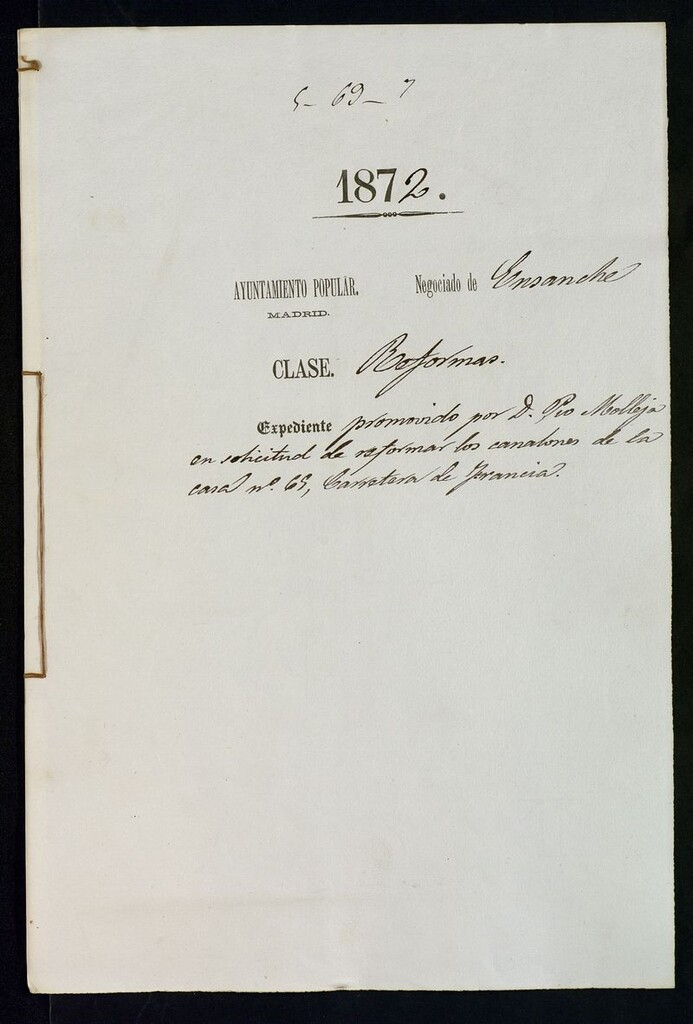 5-69-7
1872.
AYUNTAMIENTO POPULAR. Negociado de Ensanche
MADRID.
CLASE. Reformas.
Expediente promovido por D. Pio Molleja
en solicitud de reformar los canalones de la
casa nº. 69, Carretera de Francia.